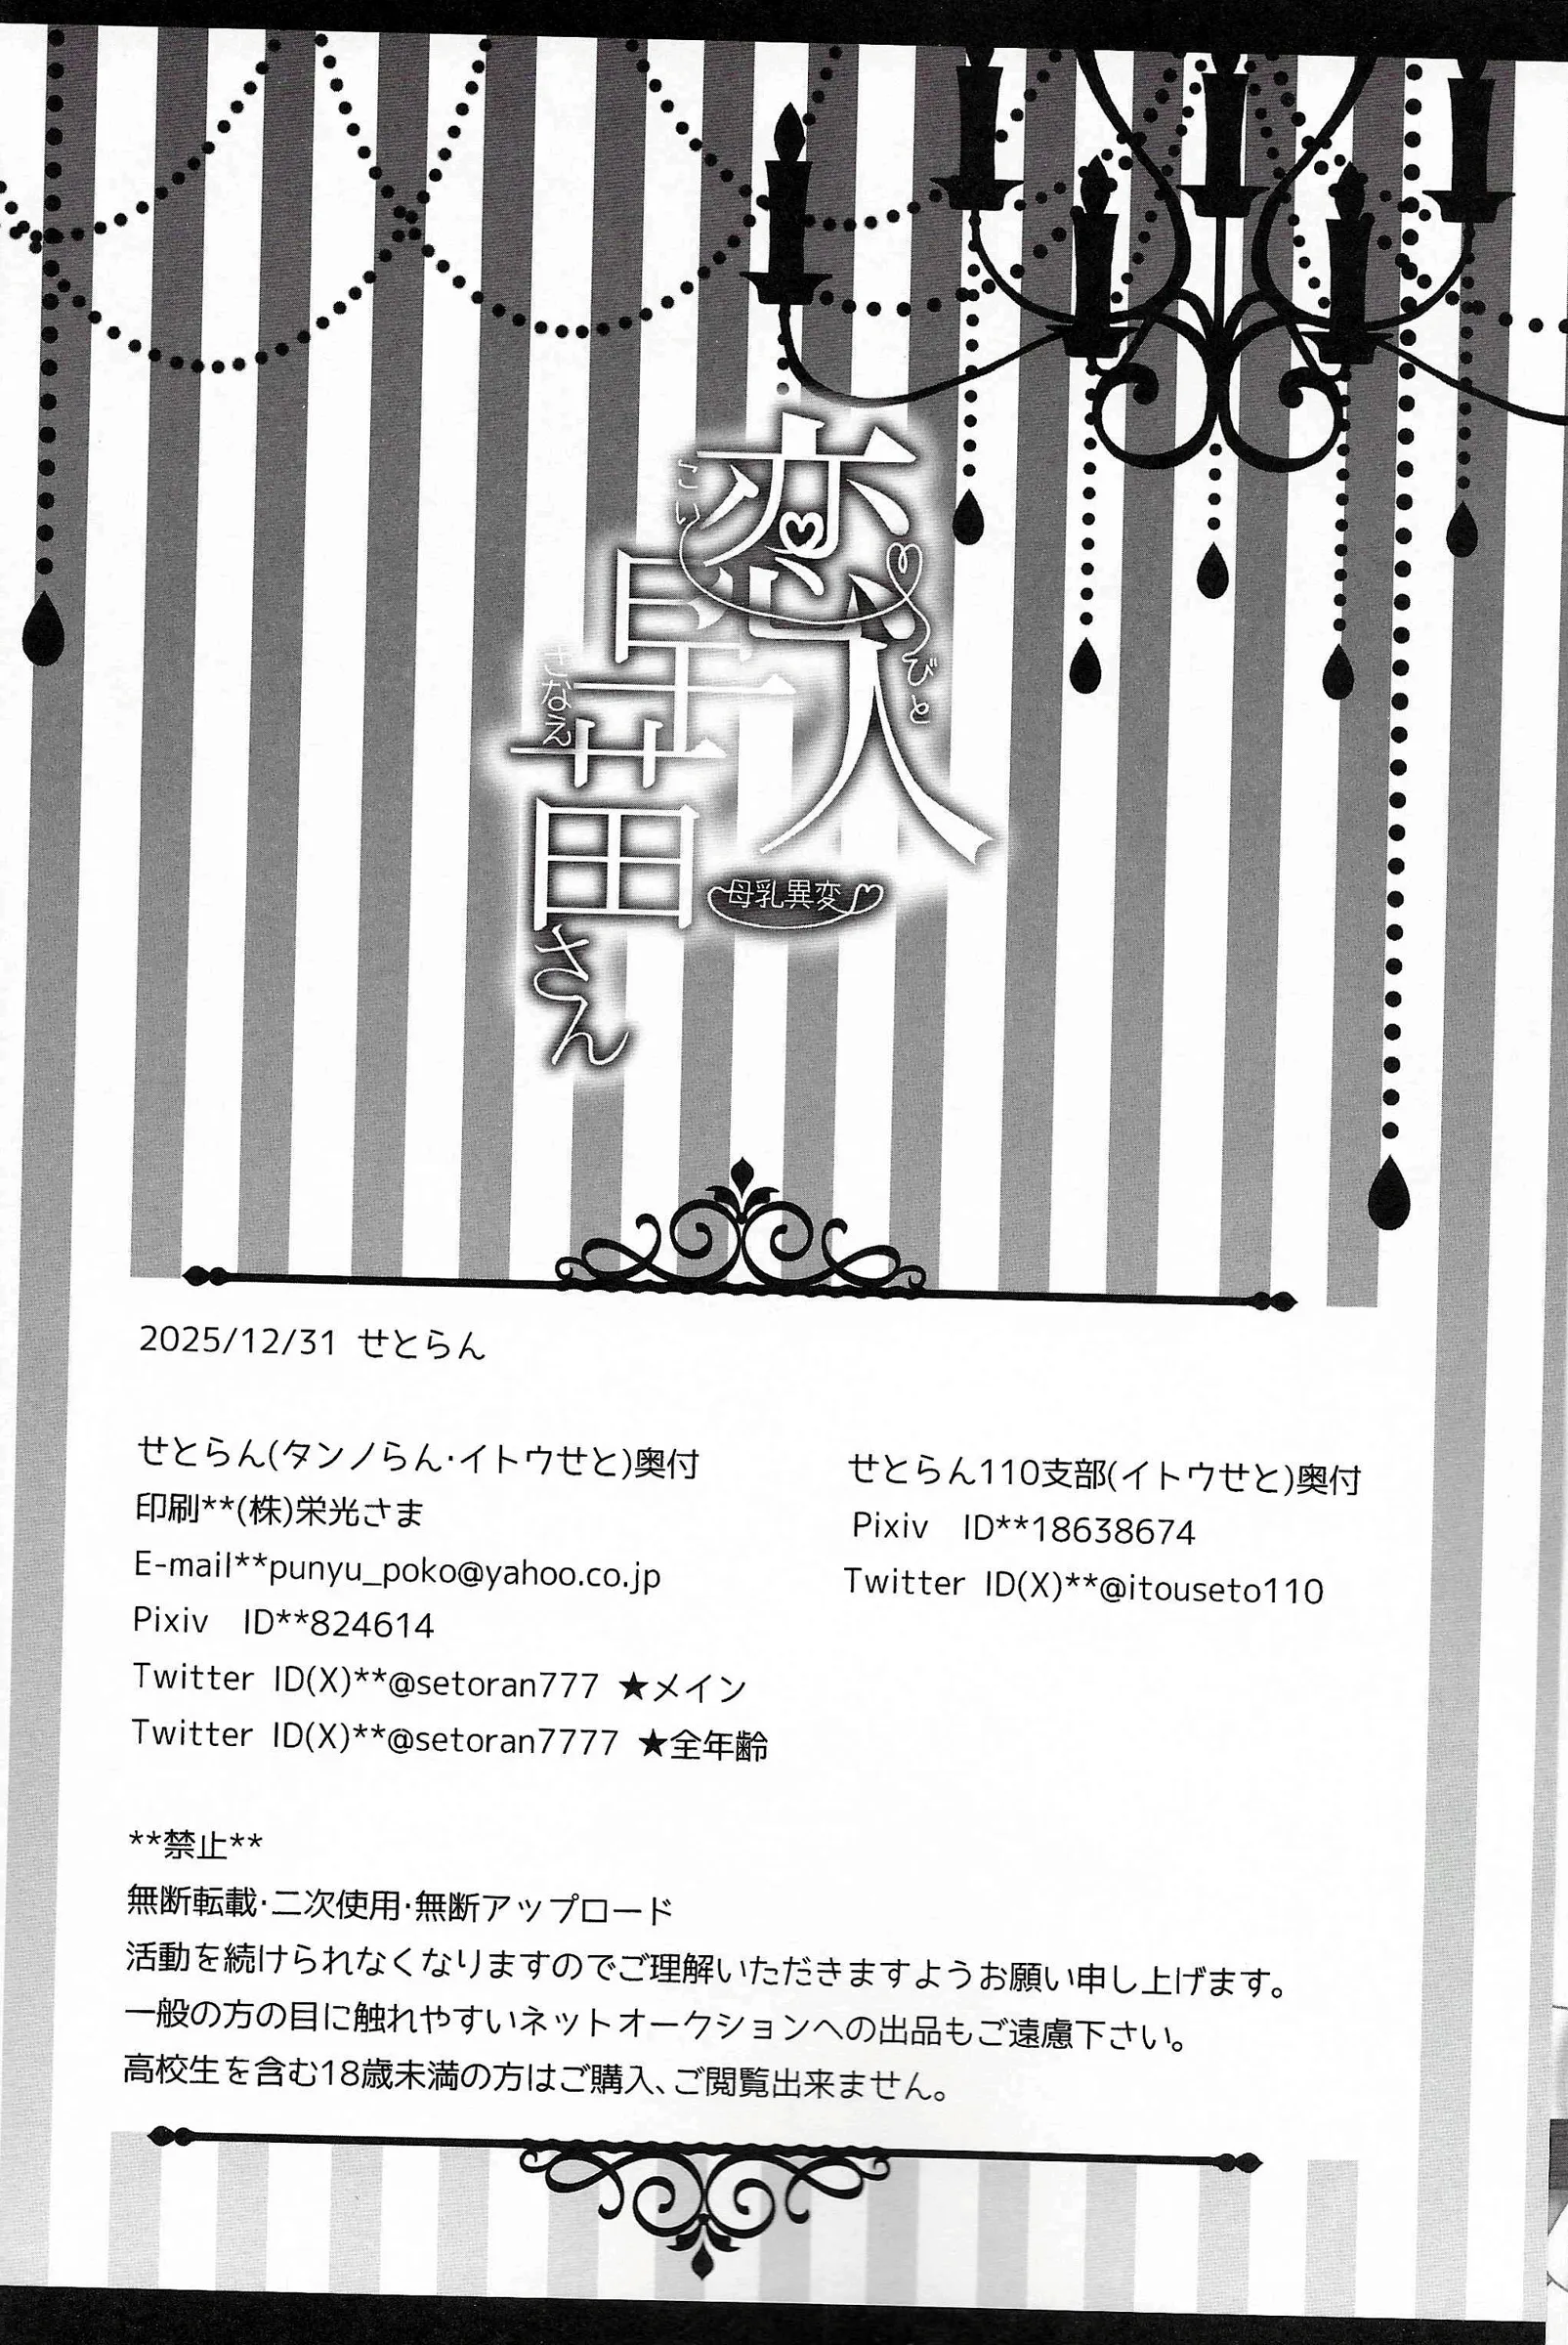 恋人
こい
びと
早苗さん
さなえ
母乳異変
2025/12/31 せとらん
せとらん(タンノらん・イトウせと)奥付
印刷**(株)栄光さま
E-mail**punyu_poko@yahoo.co.jp
Pixiv　ID**824614
Twitter ID(X)**@setoran777 ★メイン
Twitter ID(X)**@setoran7777 ★全年齢
せとらん110支部(イトウせと)奥付
Pixiv　ID**18638674
Twitter ID(X)**@itouseto110
**禁止**
無断転載・二次使用・無断アップロード
活動を続けられなくなりますのでご理解いただきますようお願い申し上げます。
一般の方の目に触れやすいネットオークションへの出品もご遠慮下さい。
高校生を含む18歳未満の方はご購入、ご閲覧出来ません。